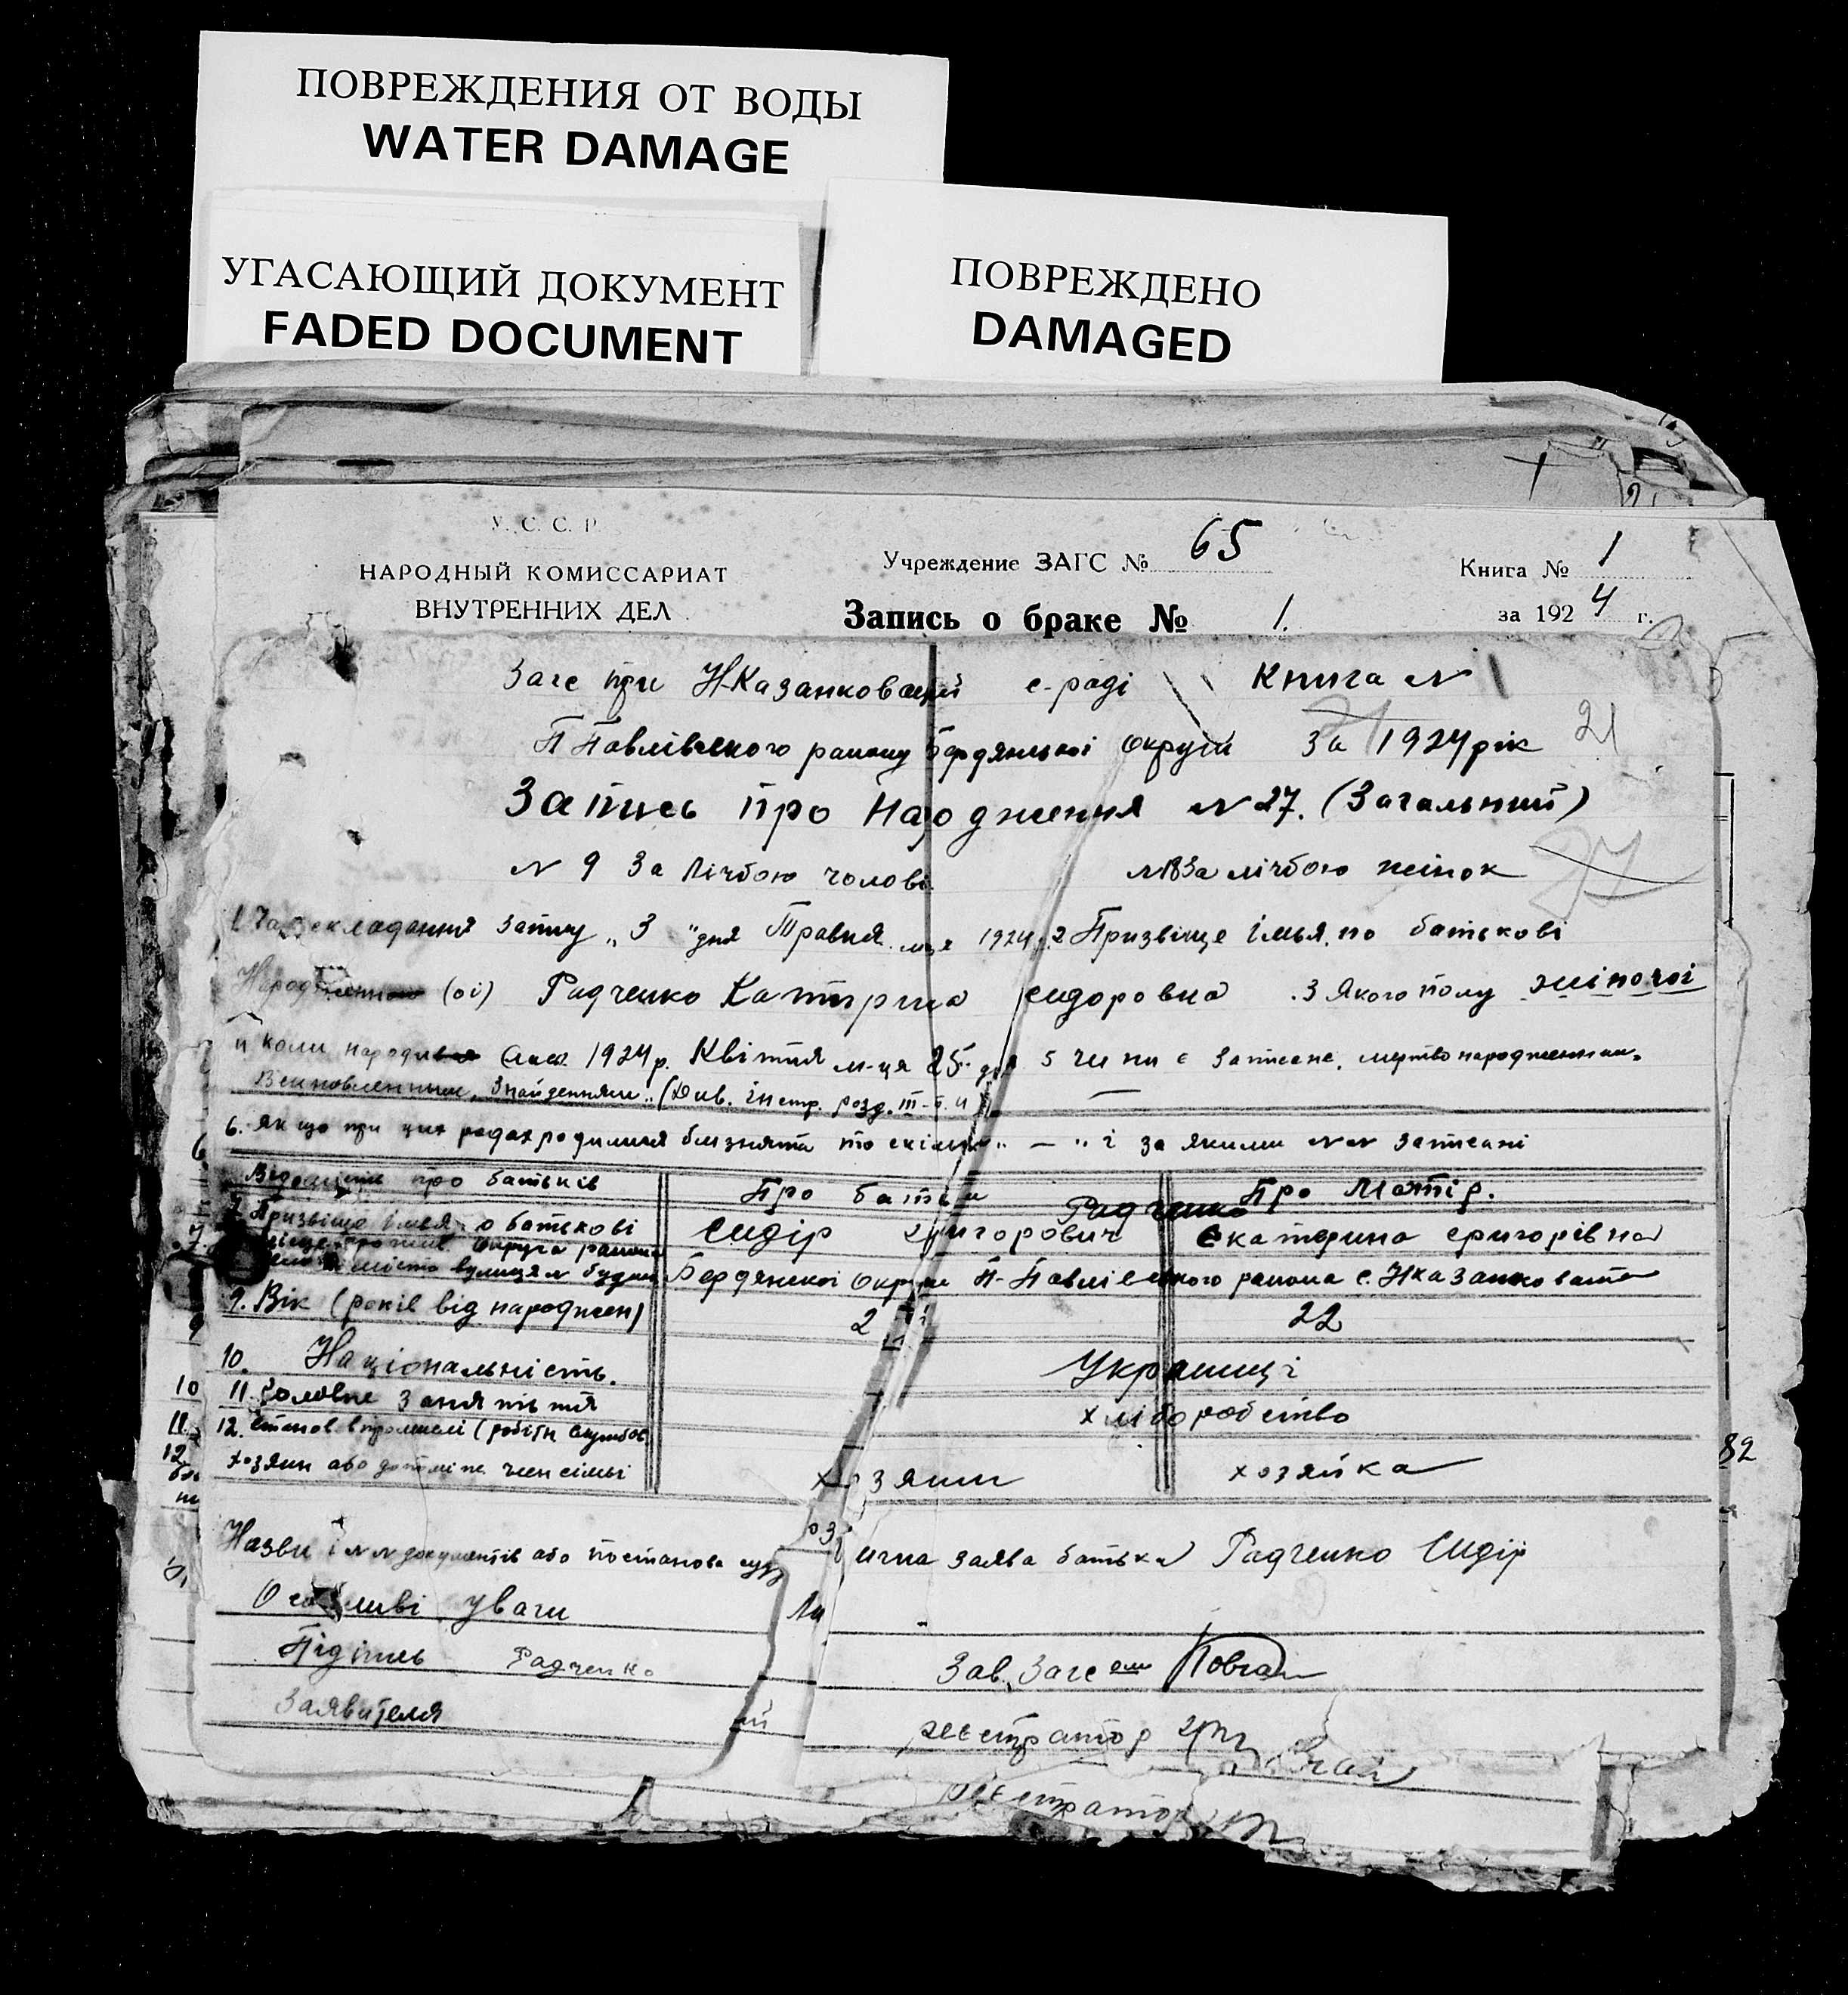 ПОВРЕЖДЕНИЯ ОТ ВОДЫ
WATER DAMAGE
УГАСАЮЩИЙ ДОКУМЕНТ
FADED DOCUMENT
ПОВРЕЖДЕНО
DAMAGED
У. С. С. Р.
НАРОДНЫЙ КОМИССАРИАТ
ВНУТРЕННИХ ДЕЛ
Учреждение ЗАГС № 65
Запись о браке № 1.
Книга № 1
за 1924 г.
Загс при Н-Казанковацкій с-раді Книга N 1
П Павлівського раиону Бердянської округи За 1924 рік 21
Запись про Народження N 27. (Загальний)
N 9 За лічбою чолові N 18 За лічбою жінок 27
складання запису „ 3 " дня Травня м-ця 1924 р. 2 Призвіще імья, по батькові
(ої) Радченко Катирина сидоровна . 3 Якого полу жіночої
4 коли народи 1924 р. Квітня м-ця 25 дня 5 чи ни є записане, мертво народженним.
Знайденням „ (Див. інстр. розд. III
6. якщо при цих родах родилися близнята то скільки „ — „ і за якими NN записані
6
про батьків Про батька Про Матір.
Призвіще імья по батькові Сидір Григорович Радченко Екатерина григорівна
округа раиона
місто вулиця N будин Бердянскої округи П-Павлівського раиона с. Нказанковате
9. Вік (років від народжен) 2 22
10. Національність. Українці
10 11. Головне Заняття хліборобство
11. 12. Станов. в промислі (робітн службов
82
12 хозяин або допоміж член сімьї хозяин хозяйка
Назви і NN документів або постанова суду заява батька Радченко Сидір
Особливі уваги
Підпись Радченко Зав. Загсом
Заявителя
реестратор
реестратор